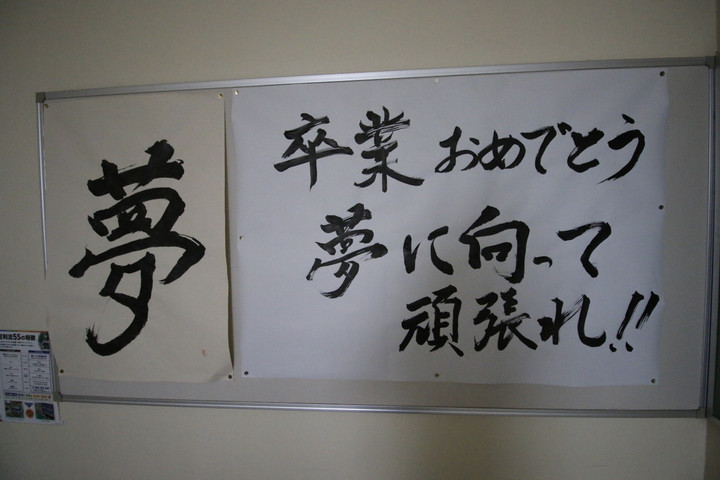 夢
卒業おめでとう
夢に向って
頑張れ!!